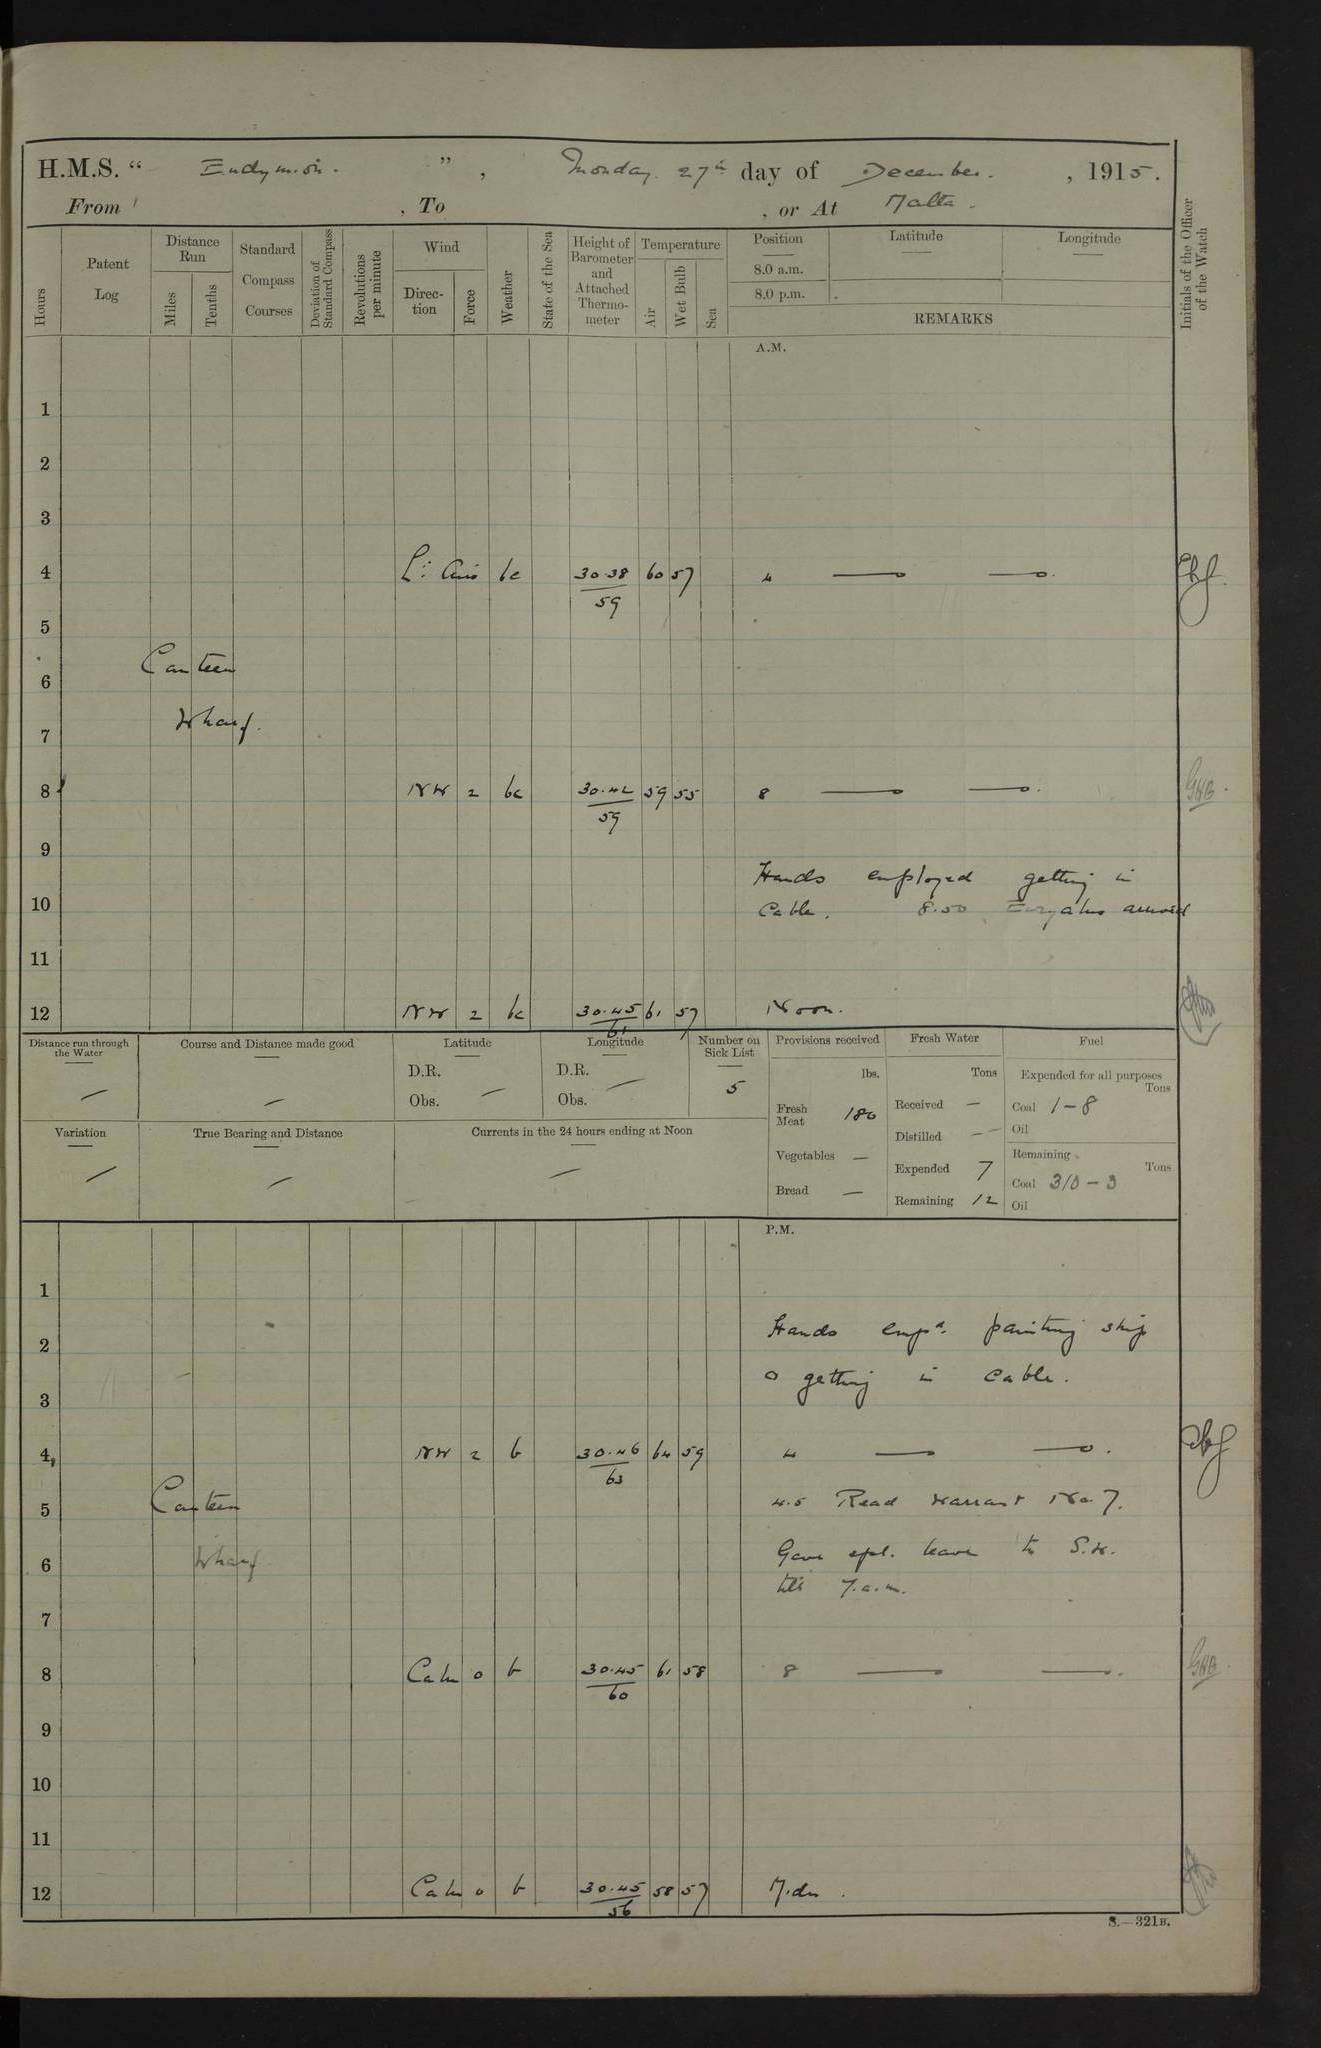 H.M.S. “ Endymion. ” , Monday 27th day of December. , 1915.
From , To , or At Malta.
Hours
Patent Log
Distance Run
Miles
Tenths
Standard Compass Courses
Deviation of Standard Compass
Revolutions per minute
Wind
Direction
Force
Weather
State of the Sea
Height of Barometer and Attached Thermometer
Temperature
Air
Wet Bulb
Sea
Position
8.0 a.m.
8.0 p.m.
Latitude
Longitude
REMARKS
Initials of the Officer of the Watch
A.M.
1
2
3
4 Lt. Airs bc 30.38 60 57 4
59
5
Canteen
6
Wharf.
7
8 NW 2 bc 30.42 59 55 8 GHB.
59
9
Hands employed getting in
10 Cable. 8.50 Euryalus arrived
11
12 NW 2 bc 30.45 61 57 Noon.
61
Distance run through the Water —
Course and Distance made good —
Latitude
D.R.
Obs. —
Longitude
D.R.
Obs. —
Number on Sick List
5
Provisions received
lbs.
Fresh Meat 180
Vegetables —
Bread —
Fresh Water
Tons
Received —
Distilled —
Expended 7
Remaining 12
Fuel
Expended for all purposes
Tons
Coal 1-8
Oil
Remaining
Tons
Coal 310-3
Oil
Variation —
True Bearing and Distance —
Currents in the 24 hours ending at Noon —
P.M.
1
Hands emp'd. painting ship
2
getting in cable.
3
4 NW 2 b 30.46 64 59 4
63
Canteen 4.5 Read Warrant No 7.
5
Wharf Gave spl. leave to S.W.
6
till 7.a.m.
7
8 Calm 0 b 30.45 61 58 8 GHB.
60
9
10
11
12 Calm 0 b 30.45 58 57 Mdn.
56
S.—321B.